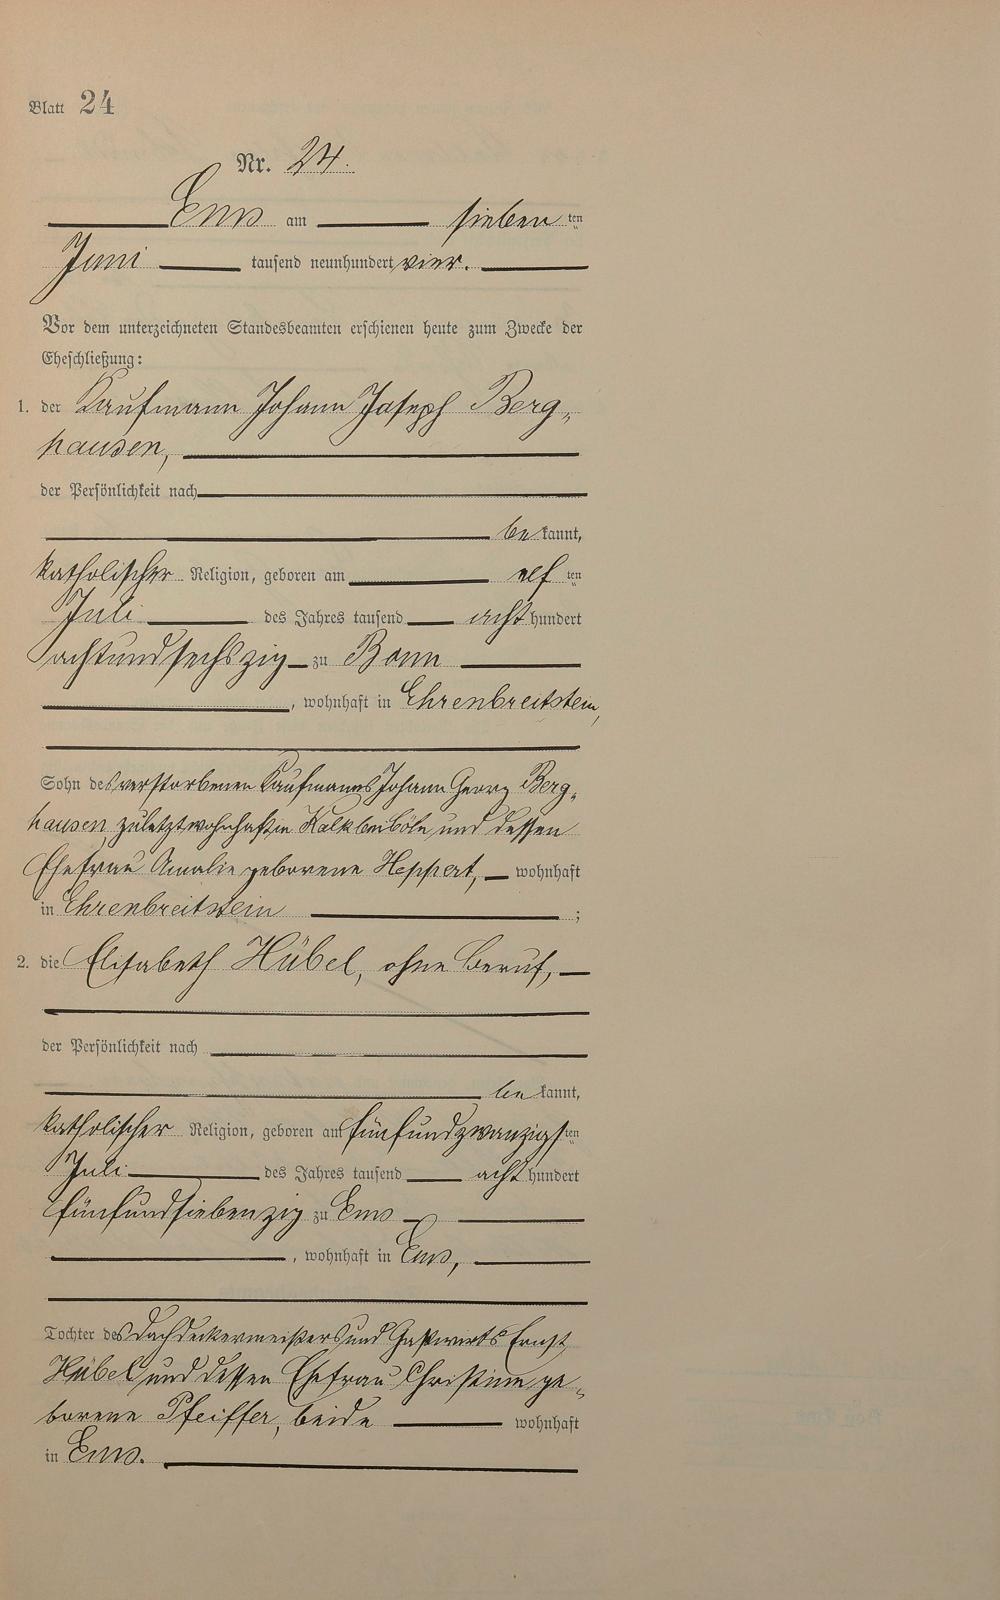 Blatt 24
Nr. 24.
Ems am sieben ten
Juni tausend neunhundert vier.
Vor dem unterzeichneten Standesbeamten erschienen heute zum Zwecke der
Eheschließung:
1. der Kaufmann Johann Joseph Berg-
hausen,
der Persönlichkeit nach
be kannt,
katholischer Religion, geboren am elf ten
Juli des Jahres tausend acht hundert
achtundsechszig zu Bonn
, wohnhaft in Ehrenbreitstein,
Sohn des verstorbenen Kaufmanns Johann Georg Berg-
hausen zuletzt wohnhaft in und dessen
Ehefrau Amalie geborene Heppert, wohnhaft
in Ehrenbreitstein ;
2. die Elisabeth Hübel, ohne Beruf,
der Persönlichkeit nach
be kannt,
katholischer Religion, geboren am fünfundzwanzigs ten
Juli des Jahres tausend acht hundert
fünfundsiebenzig zu Ems
, wohnhaft in Ems,
Tochter des Dachdeckermeisters und Gastwirts Ernst
Hübel und dessen Ehefrau Christine ge-
borene Pfeiffer, beide wohnhaft
in Ems.